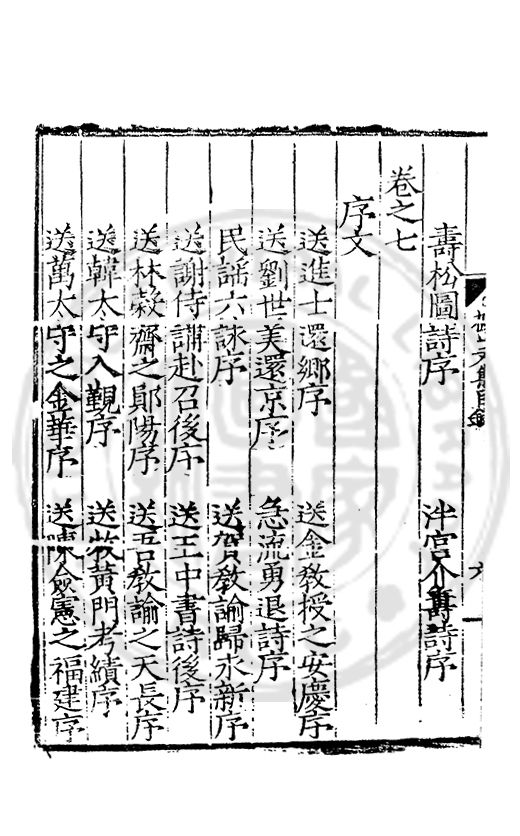 壽松圖詩序　泮宮介壽詩序
卷之七
序文
送進士還鄉序　送金教授之安慶序
送劉世美還京序　急流勇退詩序
民謠六詠序　送賀教諭歸永新序
送謝侍講赴召後序　送王中書詩後序
送林穀齋之鄖陽序　送吾教諭之天長序
送韓太守入覲序　送牧黃門考績序
送萬太守之金華序　送陳僉憲之福建序
文集目錄
六